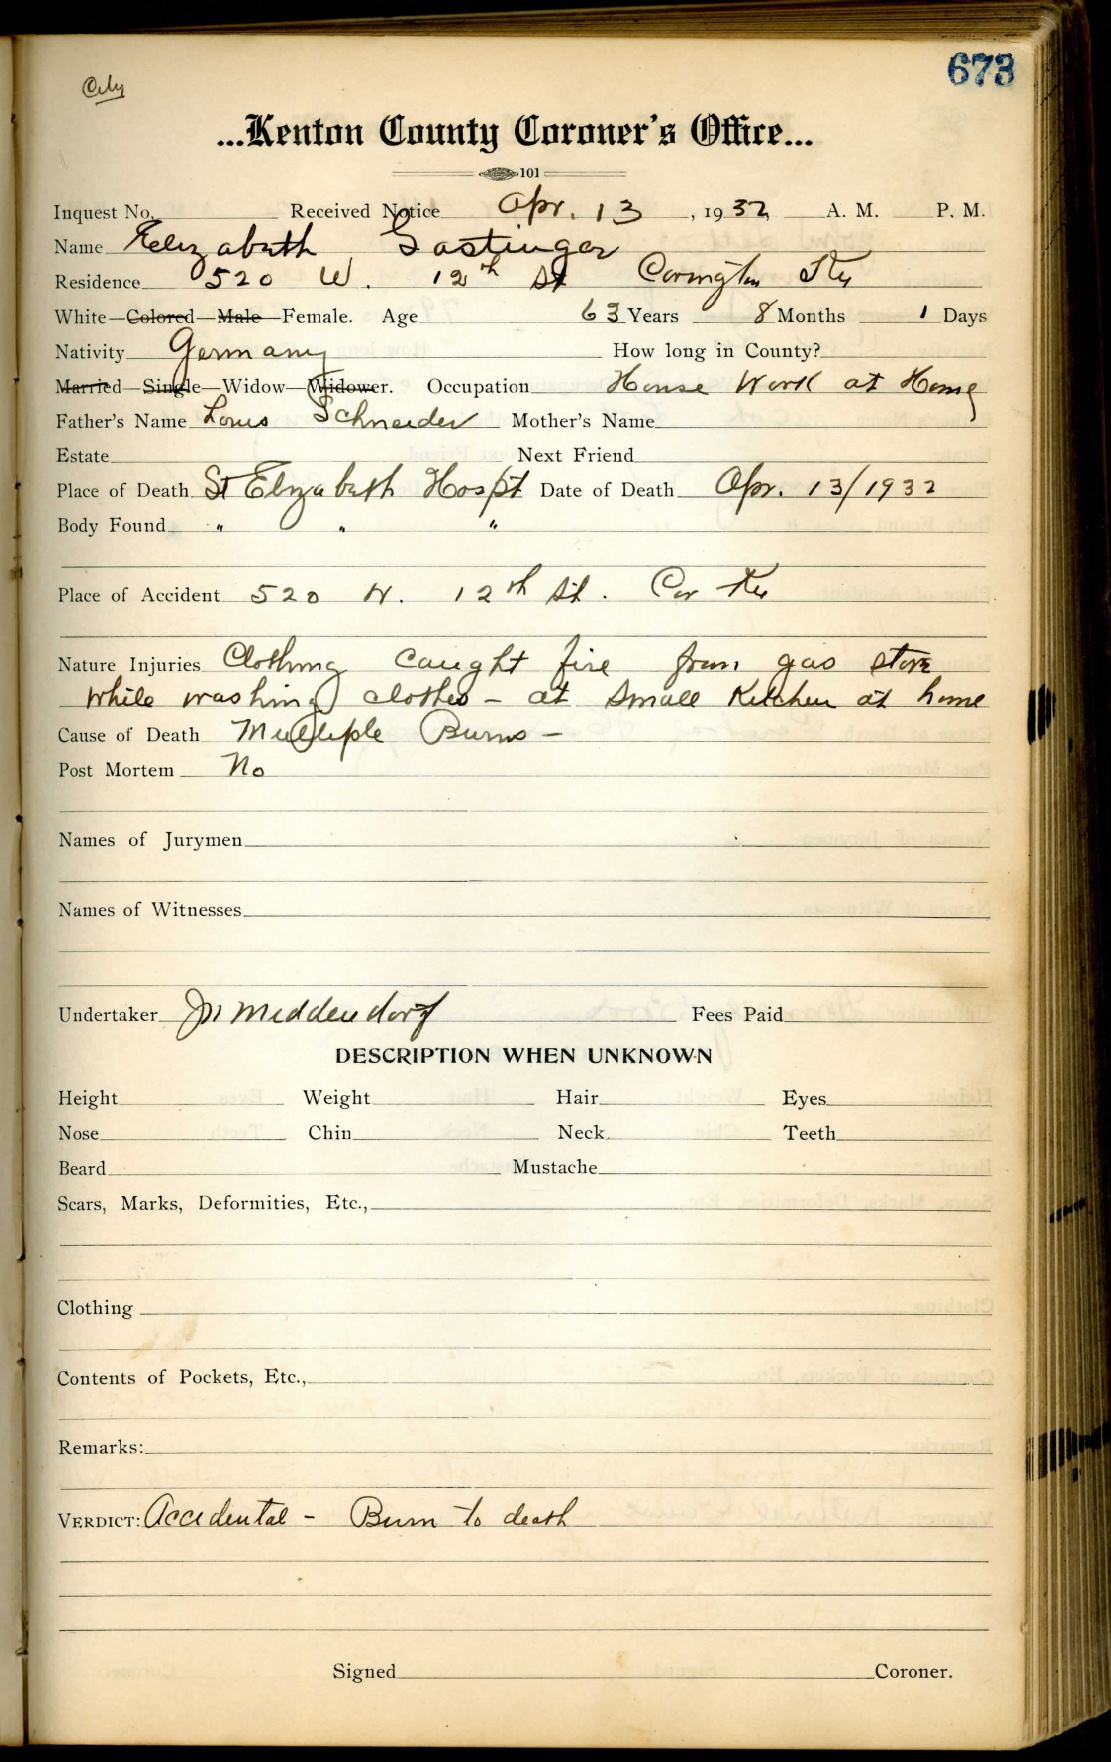 673
City
...Kenton County Coroner's Office...
101
Inquest No. Received Notice Apr. 13, 1932 A. M. P. M.
Name Elizabeth Gastinger
Residence 520 W. 12th St Covington Ky
White—Colored—Male—Female. Age 63 Years 8 Months 1 Days
Nativity Germany How long in County?
Married—Single—Widow—Widower. Occupation House Work at Home
Father's Name Louis Schneider Mother's Name
Estate Next Friend
Place of Death St Elizabeth Hospt Date of Death Apr. 13/1932
Body Found " " "
Place of Accident 520 W. 12th St. Cov Ky
Nature Injuries Clothing caught fire from gas stove
while washing clothes – at small Kitchen at home
Cause of Death Multiple Burns –
Post Mortem No
Names of Jurymen
Names of Witnesses
Undertaker Middendorf Fees Paid
DESCRIPTION WHEN UNKNOWN
Height Weight Hair Eyes
Nose Chin Neck Teeth
Beard Mustache
Scars, Marks, Deformities, Etc.,
Clothing
Contents of Pockets, Etc.,
Remarks:
VERDICT: Accidental – Burn to death
Signed Coroner.